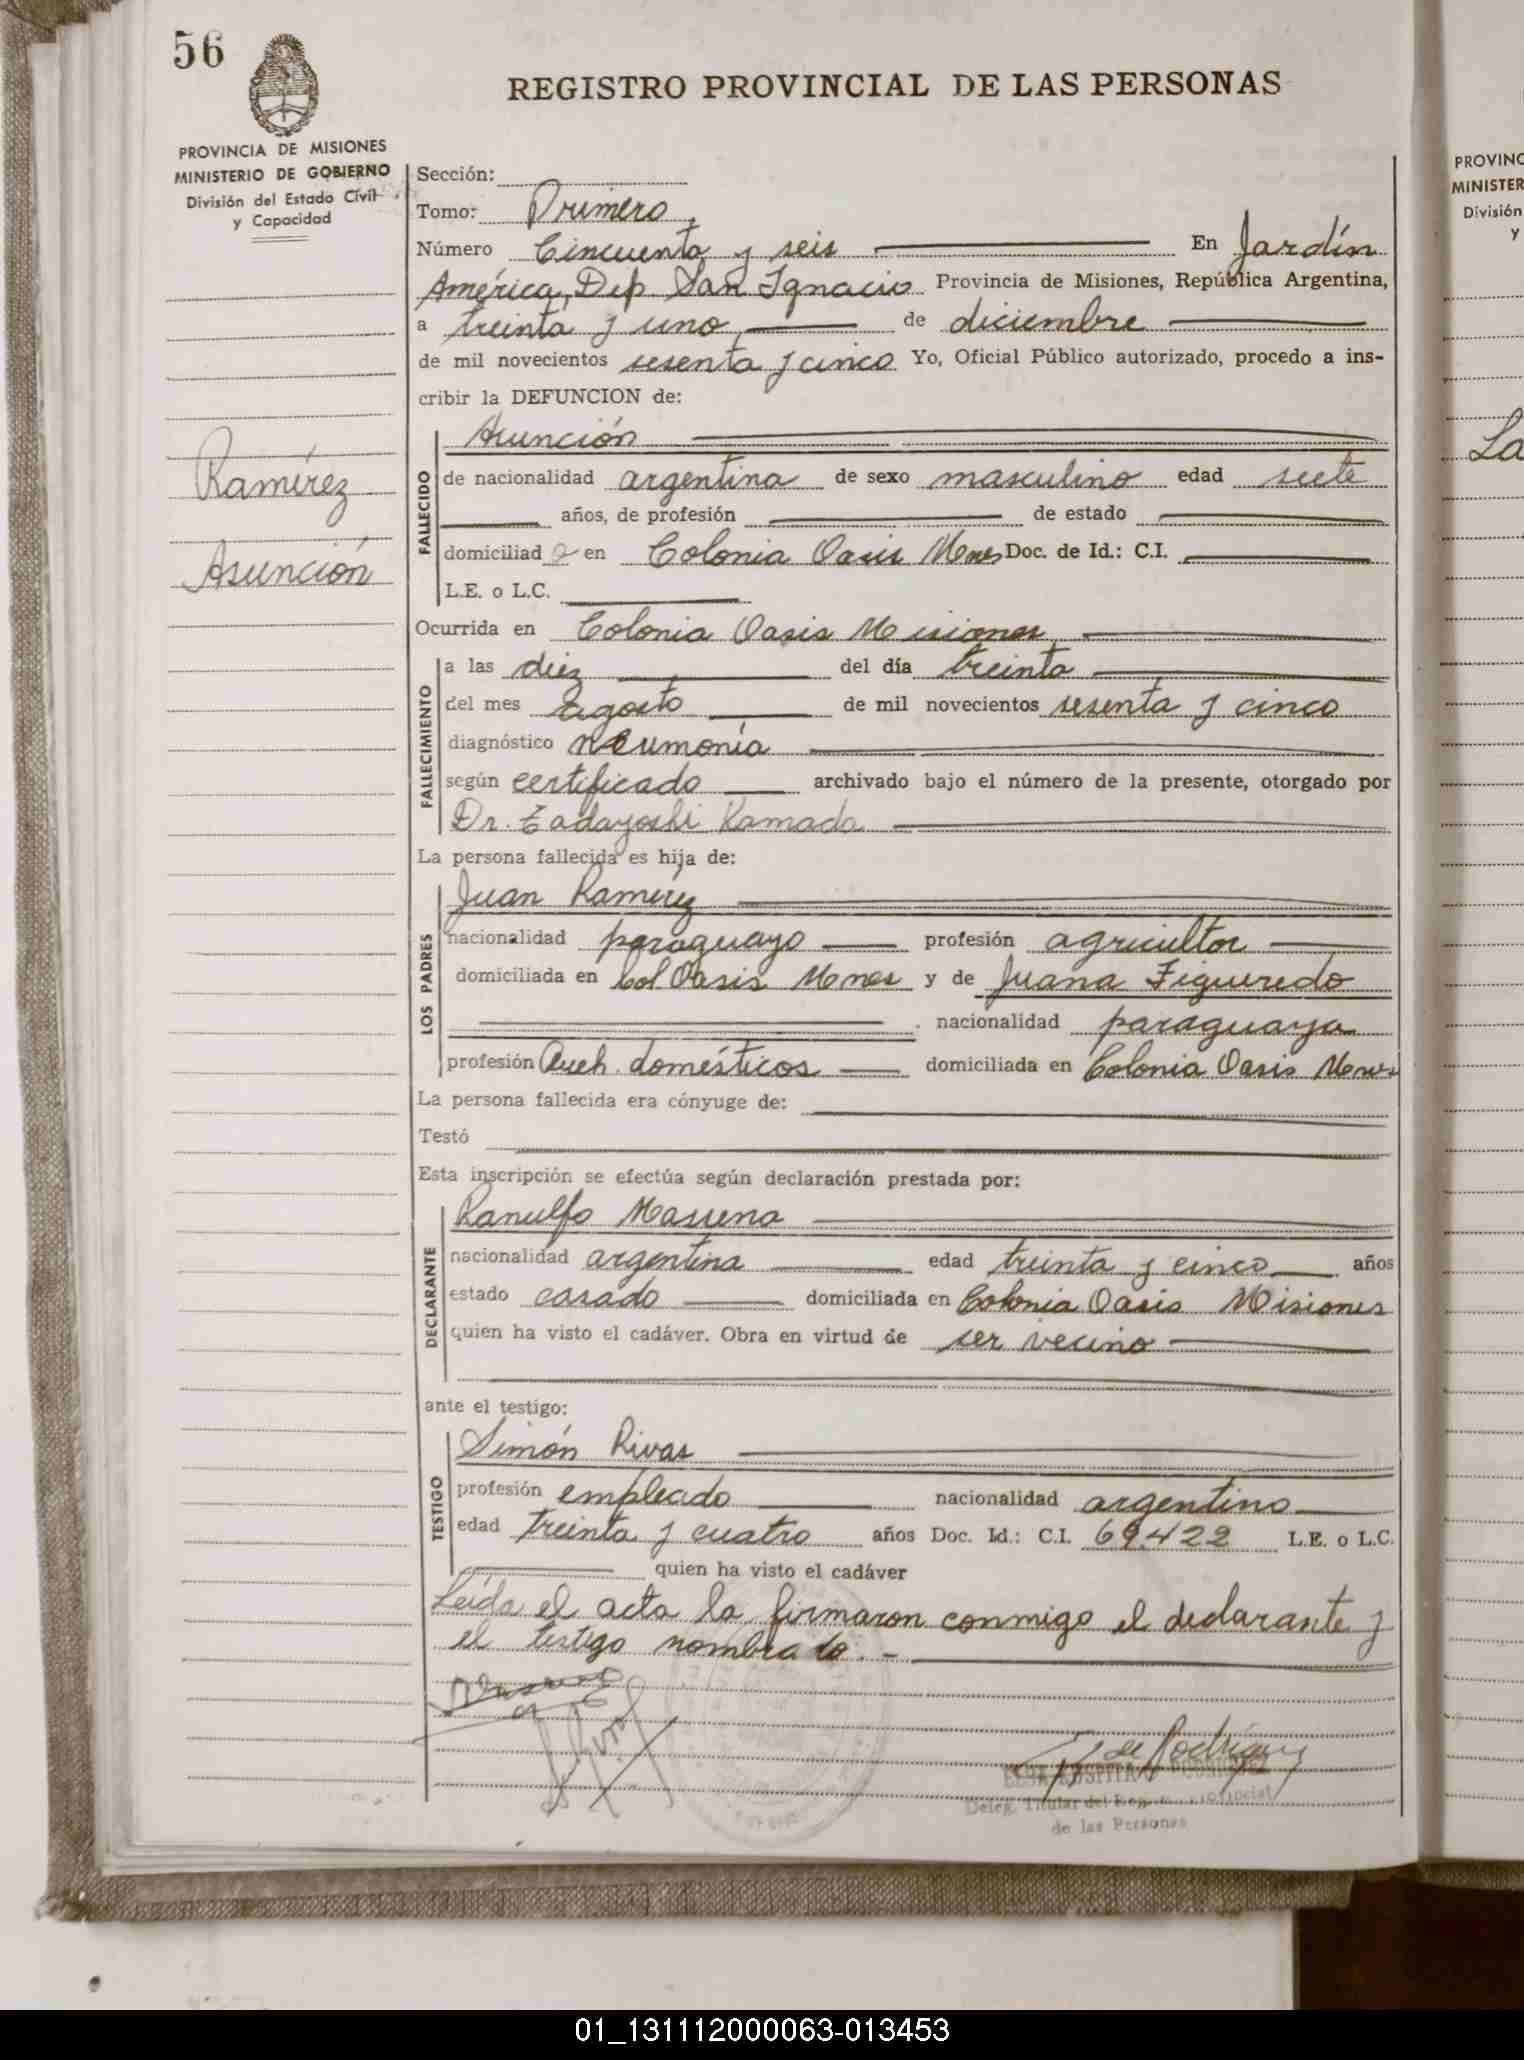 56
REGISTRO PROVINCIAL DE LAS PERSONAS
PROVINCIA DE MISIONES
MINISTERIO DE GOBIERNO
División del Estado Civil
y Capacidad
Ramírez
Asunción
Sección:
Tomo: Primero
Número Cincuenta y seis En Jardín
América, Dep. San Ignacio Provincia de Misiones, República Argentina,
a treinta y uno de diciembre
de mil novecientos sesenta y cinco Yo, Oficial Público autorizado, procedo a ins-
cribir la DEFUNCION de:
FALLECIDO
Asunción
de nacionalidad argentina de sexo masculino edad siete
años, de profesión de estado
domiciliad o en Colonia Oasis Mnes Doc. de Id.: C.I.
L.E. o L.C.
Ocurrida en Colonia Oasis Misiones
FALLECIMIENTO
a las diez del día treinta
del mes agosto de mil novecientos sesenta y cinco
diagnóstico neumonía
según certificado archivado bajo el número de la presente, otorgado por
Dr. Tadayoshi Kamada
La persona fallecida es hija de:
LOS PADRES
Juan Ramírez
nacionalidad paraguayo profesión agricultor
domiciliada en Col Oasis Mnes y de Juana Figueredo
nacionalidad paraguaya
profesión Queh. domésticos domiciliada en Colonia Oasis Mnes
La persona fallecida era cónyuge de:
Testó
Esta inscripción se efectúa según declaración prestada por:
DECLARANTE
Ranulfo
nacionalidad argentina edad treinta y cinco años
estado casado domiciliada en Colonia Oasis Misiones
quien ha visto el cadáver. Obra en virtud de ser vecino
ante el testigo:
TESTIGO
Simón Rivas
profesión empleado nacionalidad argentino
edad treinta y cuatro años Doc. Id.: C.I. 69.422 L.E. o L.C.
quien ha visto el cadáver
Leída el acta la firmaron conmigo el declarante y
el testigo nombrado. -
de Rodríguez
Deleg. Titular del
de las Personas
PROVINC
MINISTER
División
y
La
01_131112000063-013453